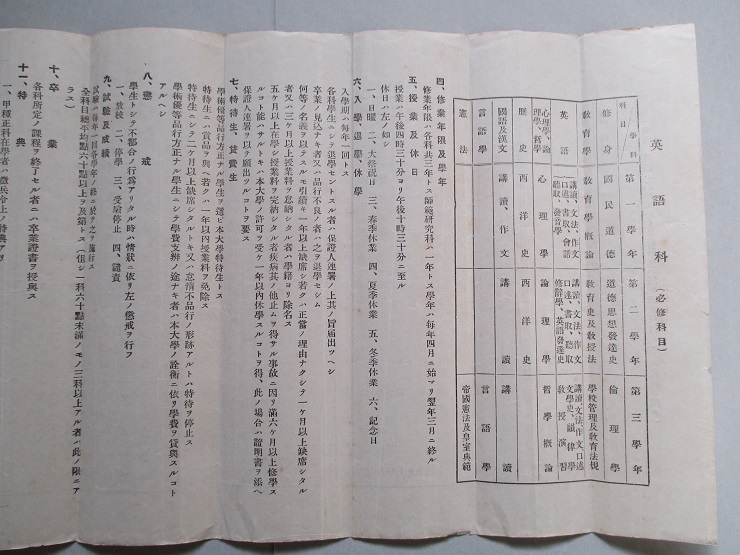 英語科（必修科目）
科目／學科 第一學年 第二學年 第三學年
修身 國民道德 道德思想發達史 倫理學
教育學 教育學概論 教育史及教授法 學校管理及教育法規
英語 講讀、文法、作文 口述、書取、會話 聽取、發音學 講讀、文法、作文 口述、書取、聽取 修辭學、英語發達史 講讀、文法、作文、口述 文學史、韻律學 教授演習
心理學、論理學、哲學 心理學 論理學 哲學概論
歷史 西洋史 西洋史
國語及漢文 講讀、作文 講讀 講讀
言語學 言語學
憲法 帝國憲法及皇室典範
四、修業年限及學年
修業年限ハ各科共三年トス師範硏究科ハ一年トス學年ハ每年四月ニ始マリ翌年三月ニ終ル
五、授業及休日
授業ハ午後四時三十分ヨリ午後十時三十分ニ至ル
休日ハ左ノ如シ
一、日曜 二、大祭祝日 三、春季休業 四、夏季休業 五、冬季休業 六、記念日
六、入學、退學、休學
入學期ハ每年一回トス
各科學生ニシテ退學セントスル者ハ保證人連署ノ上其ノ旨屆出ヅヘシ
卒業ノ見込ナキ者又ハ品行不良ノ者ハ之ヲ退學セシム
何等ノ名義ヲ以テスルモ引續キ一年以上缺席シ若クハ正當ノ理由ナクシテ一ケ月以上缺席シタル
者又ハ三ケ月以上授業料ヲ怠納シタル者ハ學籍ヨリ除名ス
五ケ月以上在學シ授業料ヲ完納シタル者疾病其ノ他止ムヲ得サル事故ニ因リ滿六ケ月以上修學ス
ルコト能ハサルトキハ本大學ノ許可ヲ受ケ一年以內休學スルコトヲ得、此ノ場合ハ證明書ヲ添ヘ
保證人連署ヲ以テ願出ツルコトヲ要ス
七、特待生、貸費生
學術優等品行方正ナル學生ヲ選ビ本大學特待生トス
特待生ニハ賞品ヲ與ヘ若クハ一年以內授業料ヲ免除ス
特待生ニシテ二ケ月以上缺席シタルトキ又ハ怠惰不品行ノ形跡アルトハ特待ヲ停止ス
學術優等品行方正ナル學生ニシテ學費支辨ノ途ナキ者ハ本大學ノ詮衡ニ依リ學費ヲ貸與スルコト
アルヘシ
八、懲戒
學生ニシテ不都合ノ行爲アリタル時ハ情狀ニ依リ左ノ懲戒ヲ行フ
一、放校 二、停學 三、受驗停止 四、譴責
九、試驗及成績
試驗ハ每年一回各學年ノ終ニ於テ之ヲ施行ス
全科目總平均點六十點以上ヲ及第トス（但シ一科六十點未滿ノモノ三科以上アル者ハ此ノ限ニア
ラス）
十、卒業
各科所定ノ課程ヲ終了セル者ニハ卒業證書ヲ授與ス
十一、特典
一、甲種正科在學者ハ徵兵令上ノ特典アリ